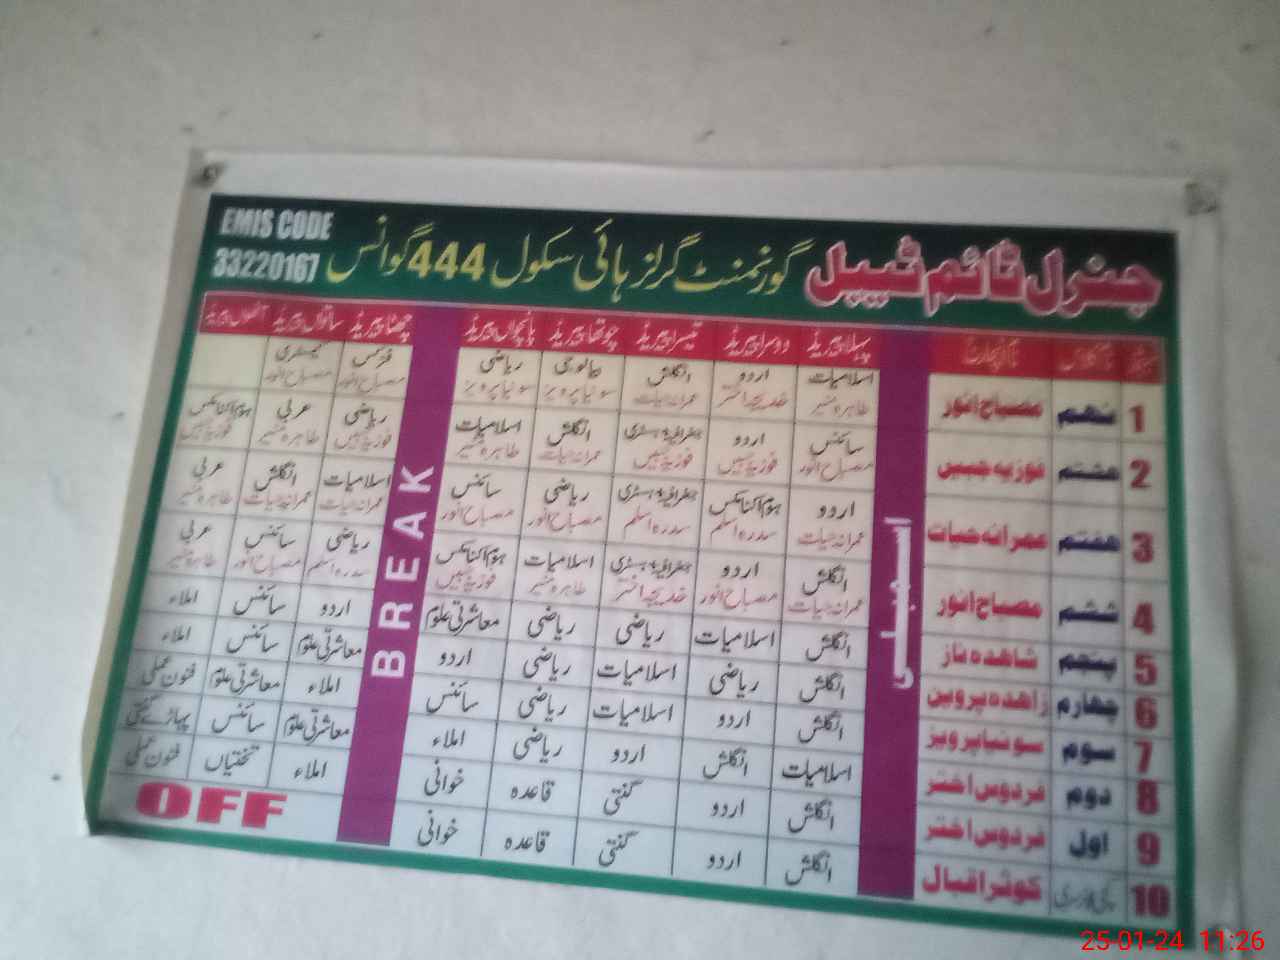 جنرل ٹائم ٹیبل گورنمنٹ گرلز ہائی سکول 444 گوانس EMIS CODE 33220167
پہلا پیریڈ دوسرا پیریڈ تیسرا پیریڈ چوتھا پیریڈ پانچواں پیریڈ چھٹا پیریڈ ساتواں پیریڈ آٹھواں پیریڈ
1 نہم مصباح انور اسلامیات اردو انگلش بیالوجی ریاضی فزکس کیمسٹری
طاہرہ منیر خدیجہ اختر عمرانہ حیات سونیا پرویز سونیا پرویز مصباح انور مصباح انور
2 ہشتم فوزیہ جبیں سائنس اردو جغرافیہ ہسٹری انگلش اسلامیات ریاضی عربی ہوم اکنامکس
مصباح انور فوزیہ جبیں فوزیہ جبیں عمرانہ حیات طاہرہ منیر فوزیہ جبیں طاہرہ منیر فوزیہ جبیں
3 ہفتم عمرانہ حیات اردو ہوم اکنامکس جغرافیہ ہسٹری ریاضی سائنس اسلامیات انگلش عربی
عمرانہ حیات سدرہ اسلم سدرہ اسلم مصباح انور مصباح انور عمرانہ حیات عمرانہ حیات طاہرہ منیر
4 ششم مصباح انور انگلش اردو جغرافیہ ہسٹری اسلامیات ہوم اکنامکس ریاضی سائنس عربی
عمرانہ حیات مصباح انور خدیجہ اختر طاہرہ منیر فوزیہ جبیں سدرہ اسلم مصباح انور طاہرہ منیر
5 پنجم شاہدہ ناز انگلش اسلامیات ریاضی ریاضی معاشرتی علوم اردو سائنس املاء
6 چہارم زاہدہ پروین انگلش ریاضی اسلامیات ریاضی اردو معاشرتی علوم سائنس املاء
7 سوم سونیا پرویز انگلش اردو اسلامیات ریاضی سائنس املاء معاشرتی علوم فنون عملی
8 دوم فردوس اختر اسلامیات انگلش اردو ریاضی املاء معاشرتی علوم سائنس پہاڑے گنتی
9 اول فردوس اختر انگلش اردو گنتی قاعدہ خوانی املاء تختیاں فنون عملی
10 کوثر اقبال انگلش اردو گنتی قاعدہ خوانی OFF
اسمبلی
BREAK
25-01-24 11:26